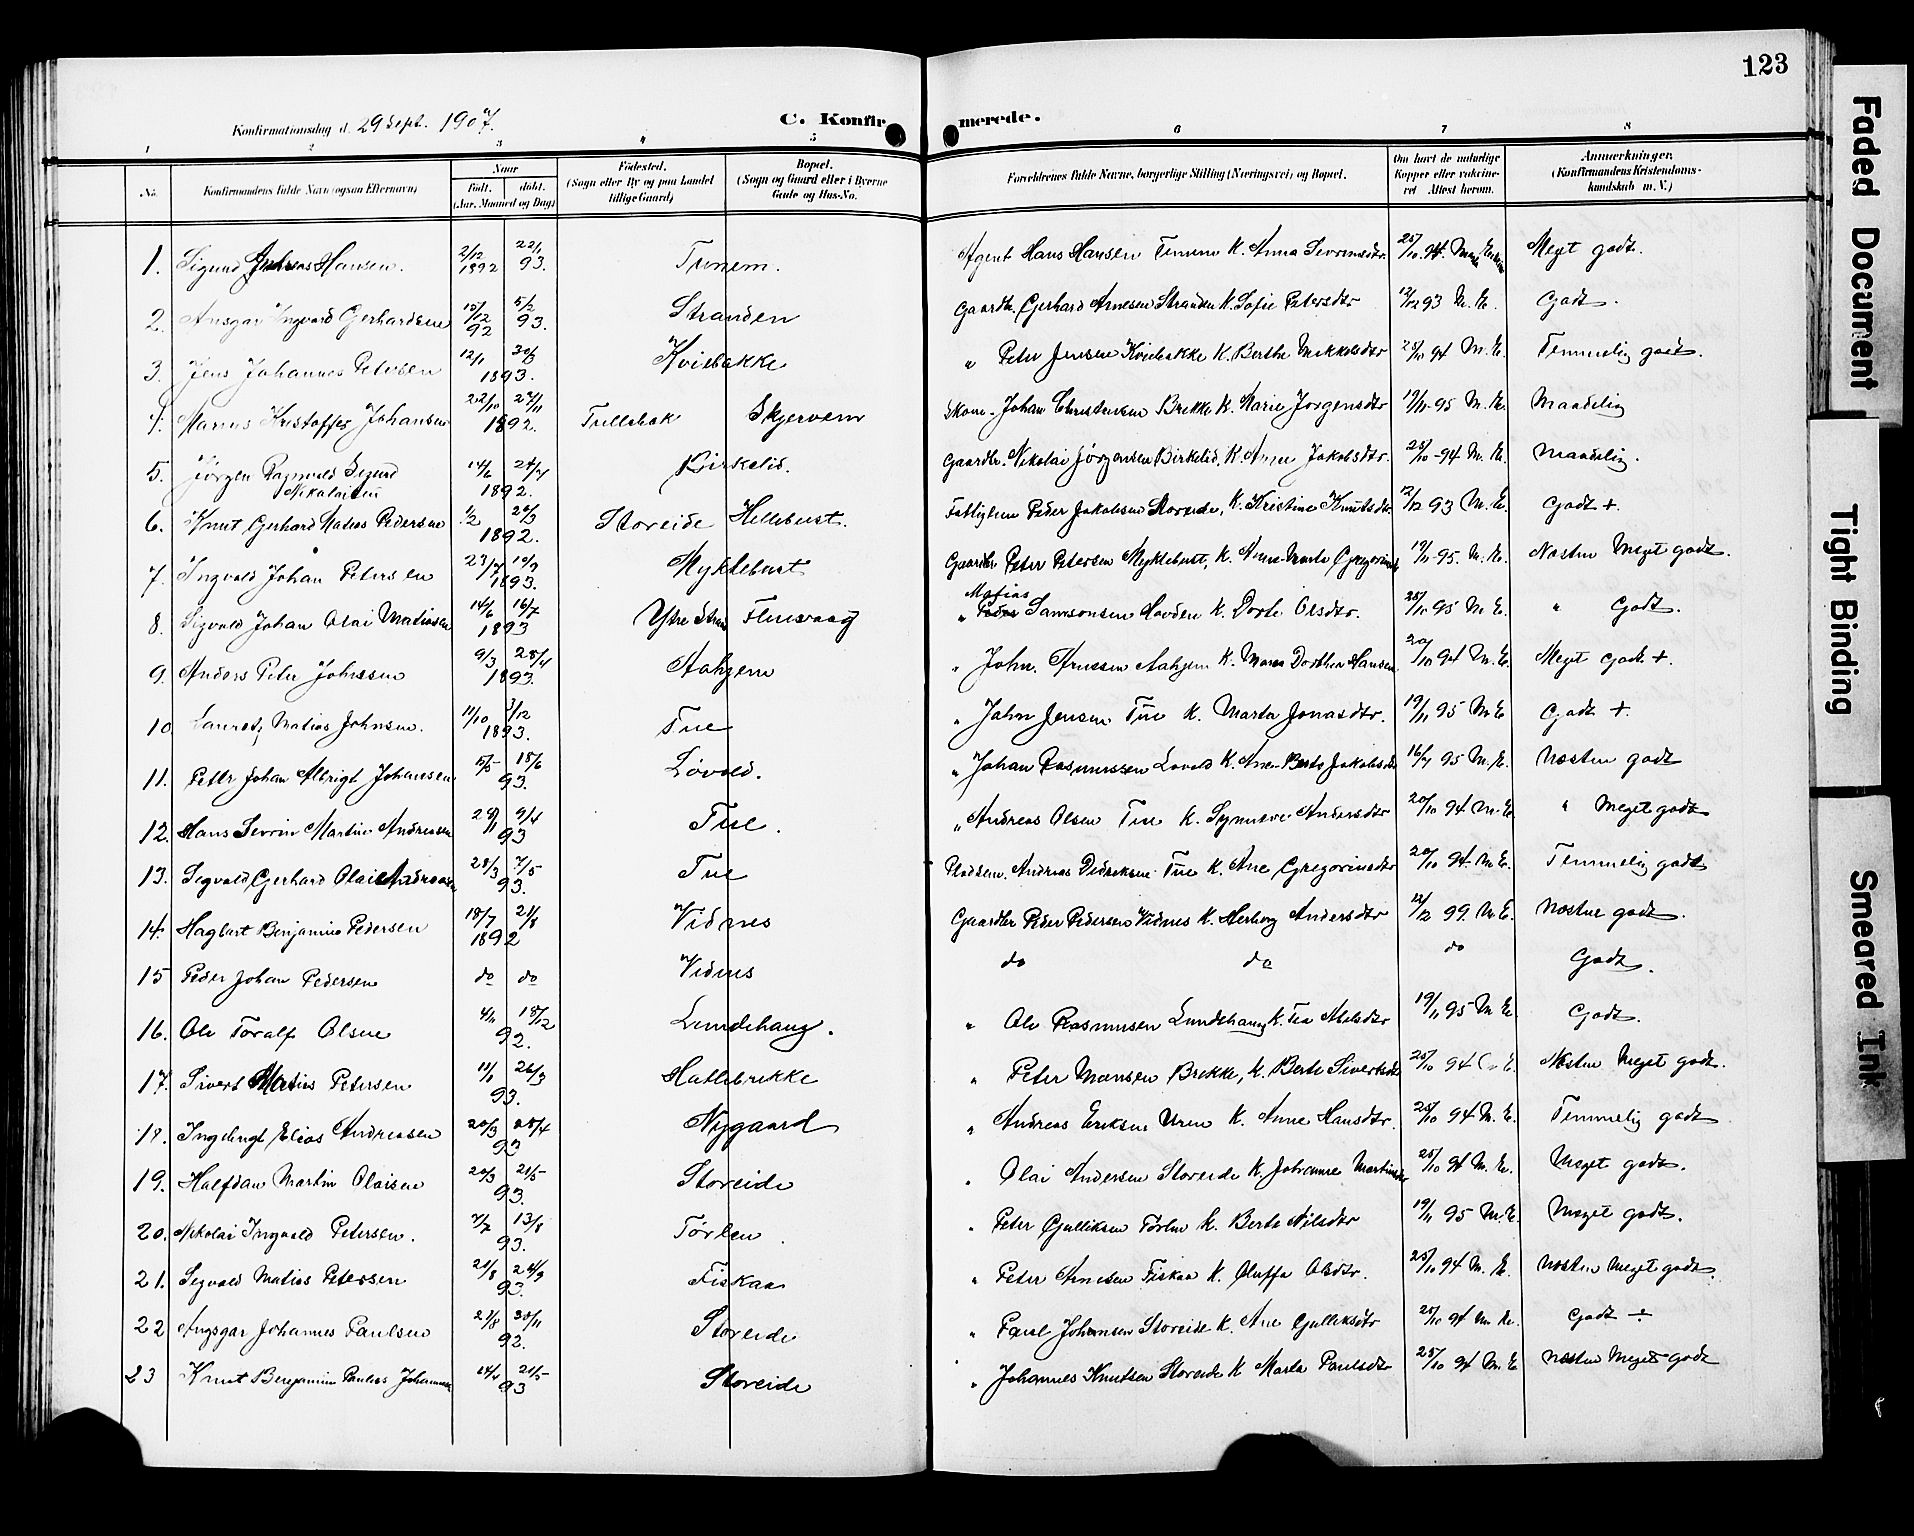 123
Konfirmationsdag d. 29 Sept. 1907.
C. Konfirmerede.
1 2 3 4 5 6 7 8
No.
Konfirmandens fulde Navn (ogsaa Efternavn)
Naar
født. døbt.
(Aar, Maaned og Dag)
Fødested.
(Sogn eller By og paa Landet
tillige Gaard)
Bopæl.
(Sogn og Gaard eller i Byerne
Gade og Hus-No.
Forældrenes fulde Navne, borgerlige Stilling (Næringsvei) og Bopæl.
Om havt de naturlige
Kopper eller vaccine-
ret Attest herom.
Anmerkninger.
(Konfirmandens Kristendoms-
kundskab m. V.)
1. Sigurd Hansen. 2/12 1892 22/1 93. Agent Hans Hansen K. Anna 25/10 94. Meget godt.
2. Ansgar Ingvard Gerhardsen 15/12 92 5/2 93. Stranden Gaardbr. Gerhard Arnesen Stranden K. Sofie Petersdtr 12/12 93 M. E. Godt.
3. Jens Johannes Petersen 12/1 1893. Kvisbakke " Peter Jensen Kvisbakke K. Berthe Mikkelsdtr 94 M. E. Temmelig godt.
4. Marius Kristoffer Johansen 22/10 27/11 1892. Skjervem Johan Brekke K. Marie Jørgensdtr 19/11 95 M. E. Maadelig
5. Jørgen Ragnvald Sigurd Nikolaisen 14/6 24/7 1892. Gaardbr. Nikolai Jørgensen Birkelid, K. Anne Jakobsdtr. 25/10 94 M. E. Maadelig.
6. Knut Gerhard Matias Pedersen 1/2 20/3 1892. Storeide Hellebust. Peder Jakobsen Storeide, K. Kristine Knutsdtr 12/12 93 M. E. Godt +
7. Ingvald Johan Petersen 1893. Myklebust Gaardbr Peter Petersen Myklebust, K. Anne Marta 19/11 95. M. E. Næsten Meget godt.
8. Sigvald Johan Olai Matiasen 14/6 16/7 1893 Ytre Flusvaag " Matias Samsonsen Hovden K. Dorte Olsdtr. 95 M. E. " Godt.
9. Anders Peter Johnsen 9/3 23/4 1893. Aahjem " John Arnesen Aahjem K. Dorthea Hansen 20/10 94 M. E. Meget Godt +.
10. Laurets Matias Johnsen. 11/10 3/12 1893. Tue " John Jensen Tue K. Marta Jonasdtr. 19/11 95 M. E Godt +
11. Petter Johan Albrigt Johansen 18/6 93. Løvold. " Johan Rasmussen Løvold K. Ane Berte Jakobsdtr 95 M. E. Næsten godt
12. Hans Severin Martin Andreasen 9/4 93 Tue. " Andreas Olsen Tue K. Andersdtr 20/10 94 M. E. " Meget godt
13. Sigvald Gerhard Olai Andreasen 28/3 7/5 93. Tue Pladsem. Andreas Didriksen Tue K. Ane Gregoriusdtr 20/10 94. M. E. Temmelig godt
14. Hagbart Benjamin Pedersen 18/7 21/8 1892 Vidnes Gaardbr Peder Pedersen Vidnes K. Herborg Andersdtr 12/12 99. M. E. Næsten godt.
15 Peder Johan Pedersen do do Vidnes do do do Godt.
16. Ole Toralf Olsen 18/12 92. Lundehaug. " Ole Rasmusen Lundehaug K. 19/11 95 M. E. Godt.
17. Sivert Matias Petersen 26/3 93. Hallebrekke " Peter Monsen Brekke, K. Berte Sivertsdtr 25/10 94 E. Næsten Meget godt.
18. Ingebrigt Elias Andreasen 20/3 23/4 93 Nygaard " Andreas Eriksen Uren K. Anne Hansdtr. 25/10 94 M. E. Temmelig godt
19. Halfdan Martin Olaisen 20/3 21/5 93. Storeide " Olai Andersen Storeide K. Johanne 25/10 94 M. E. Meget godt.
20. Nikolai Ingvald Petersen. 7/7 13/8 93. Tørlen " Peter Gulliksen Tørlen K. Berte Nilsdtr 19/11 95 M. E. Meget godt.
21. Sigvald Matias Petersen 21/8 24/9 93. Fiskaa " Peter Arnesen Fiskaa K. Oluffa Olsdtr. 25/10 94 M. E. Næsten Meget godt.
22 Angsgar Johannes Paulsen 21/8 30/11 92. Storeide " Paul Johansen Storeide K. Ane Gulliksdtr 25/10 94 M. E. Godt ÷
23 Knut Benjamin Paulus 21/5 93 Storeide " Johannes Knutsen Storeide K Marta Paulsdtr 25/10 94 M. E Næsten Meget godt
Faded Document
Tight Binding
Smeared Ink